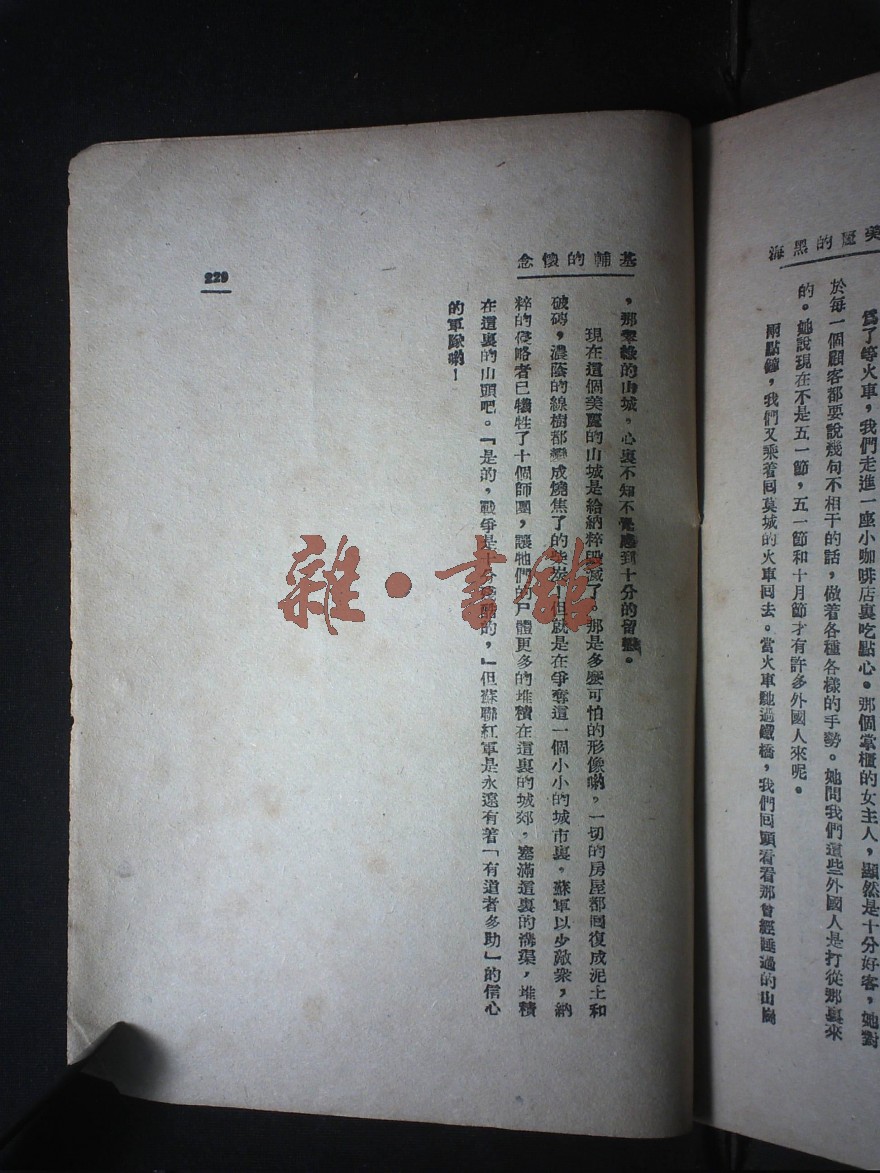 美麗的黑海
爲了等火車，我們走進一座小咖啡店裏吃點心。那個掌櫃的女主人，顯然是十分好客，她對
於每一個顧客都要說幾句不相干的話，做着各種各樣的手勢。她問我們這些外國人是打從那裏來
的。她說現在不是五一節，五一節和十月節才有許多外國人來呢。
兩點鐘，我們又乘着回莫城的火車回去。當火車馳過鐵橋，我們回頭看看那曾經踱過的山崗
基輔的懷念
，那翠綠的山城，心裏不知不覺感到十分的留戀。
現在這個美麗的山城是給納粹毀滅了，那是多麼可怕的形像喲，一切的房屋都回復成泥土和
破磚，濃蔭的綠樹都變成燒焦了的柴炭！但就是在爭奪這一個小小的城市裏，蘇軍以少敵衆，納
粹的侵略者已犧牲了十個師團，讓牠們的尸體更多的堆積在這裏的城郊，塞滿這裏的溝渠，堆積
在這裏的山頭吧。「是的，戰爭是十分的，」但蘇聯紅軍是永遠有着「有道者多助」的信心
的軍隊喲！
229
雜·書館